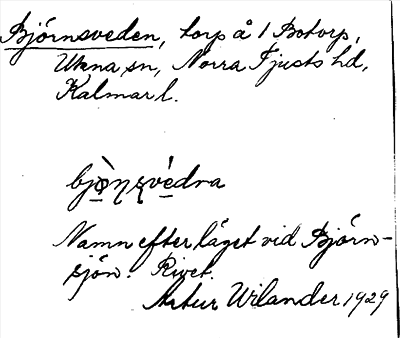 Björnsveden, torp å 1 Botorp,
Ukna sn, Norra Tjusts hd,
Kalmar l.
bjò̱ɳʂvé̱dna
Namn efter läget vid Björn-
sjön. Rivet.
Artur Wilander 1929